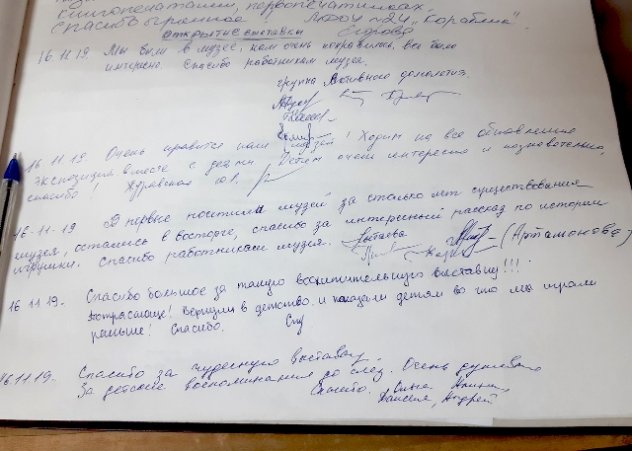 книгопечатании, первопечатниках.
Спасибо огромное! МДОУ №24 "Кораблик"
Открытие выставки
16.11.19. Мы были в музее, нам очень понравилось, все было
интересно. Спасибо работникам музея.
группа Активного долголетия
16 11 19 Очень нравится нам музей! Ходим на все обновления
экспозиции вместе с детьми. Детям очень интересно и познавательно,
спасибо! Журавская Ю.
16-11-19 В первые посетила музей за столько лет существования
музея, остались в восторге, спасибо за интересный рассказ по истории
игрушки. Спасибо работникам музея. (Артамонова)
16 11 19. Спасибо большое за такую восхитительную выставку!!!
Потрясающе! Вернули в детство и показали детям во что мы играли
раньше! Спасибо.
16.11.19. Спасибо за чудесную выставку.
За детские воспоминания до слез. Очень душевно
Спасибо. Андрей